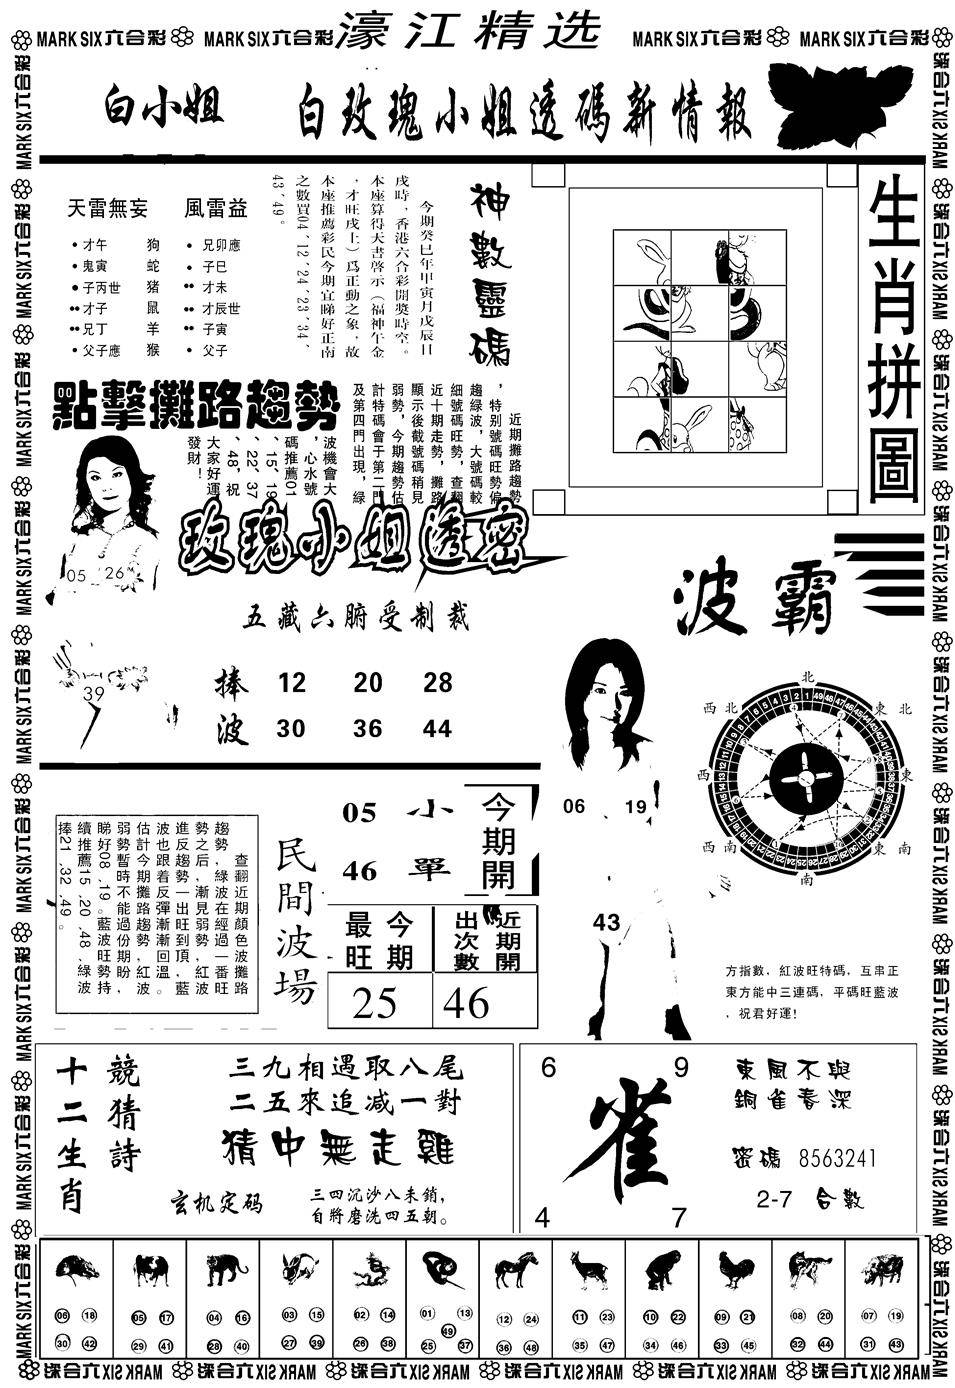 MARK SIX六合彩
MARK SIX六合彩
濠江精选
MARK SIX六合彩
MARK SIX六合彩
白小姐
白玫瑰小姐透碼新情報
天雷無妄
風雷益
•才午 狗
•鬼寅 蛇
•子丙世 猪
••才子 鼠
••兄丁 羊
•父子應 猴
•兄卯應
•子巳
••才未
••才辰世
••子寅
•父子
神數靈碼
今期癸巳年甲寅月戊辰日
戌時，香港六合彩開獎時空。
本座算得天書啓示（福神午金
，才旺戌上）爲正動之象，故
本座推薦彩民今期宜睇好正南
之數買04、12、24、23、34、
43、49。
生肖拼圖
點擊攤路趨勢
近期攤路趨勢
，特别號碼旺勢偏
趨綠波，大號碼較
細號碼旺勢，查翻
近十期走勢，攤路
顯示後截號碼稍見
弱勢，今期趨勢估
計特碼會于第二門
及第四門出現，綠
波機會大
，心水號
碼推薦01
、15、19
、22、37
、48，祝
大家好運
發財！
05 26
39
玫瑰小姐透密
五藏六腑受制裁
捧 12 20 28
波 30 36 44
波霸
北
西北 東北
西 東
西南 東南
南
06 19
43
方指數，紅波旺特碼，互串正
東方能中三連碼，平碼旺藍波
，祝君好運！
查翻近期顏色波攤路
趨勢，綠波在經過一番旺
勢之后，漸見弱勢，紅波
進反跟趨勢一出旺到頂，藍
波也着反彈漸漸回溫。
估計今期攤路趨勢紅波
弱勢暫時不能過份期盼，
睇好08、19。藍波旺勢持
續推薦15、20、48、綠波
捧21、32、49。
民間波場
05 小
46 單
今期開
今期最旺
近期開出次數
25
46
十二生肖
競猜詩
三九相遇取八尾
二五來追减一對
猜中無走雞
玄机定码
三四沉沙八未銷，
自將磨洗四五朝。
6 9
雀
4 7
東風不與
銅雀春深
密碼 8563241
2-7 合數
06 18 30 42
05 17 29 41
04 16 28 40
03 15 27 39
02 14 26 38
01 13 49 25 37
12 24 36 48
11 23 35 47
10 22 34 46
09 21 33 45
08 20 32 44
07 19 31 43